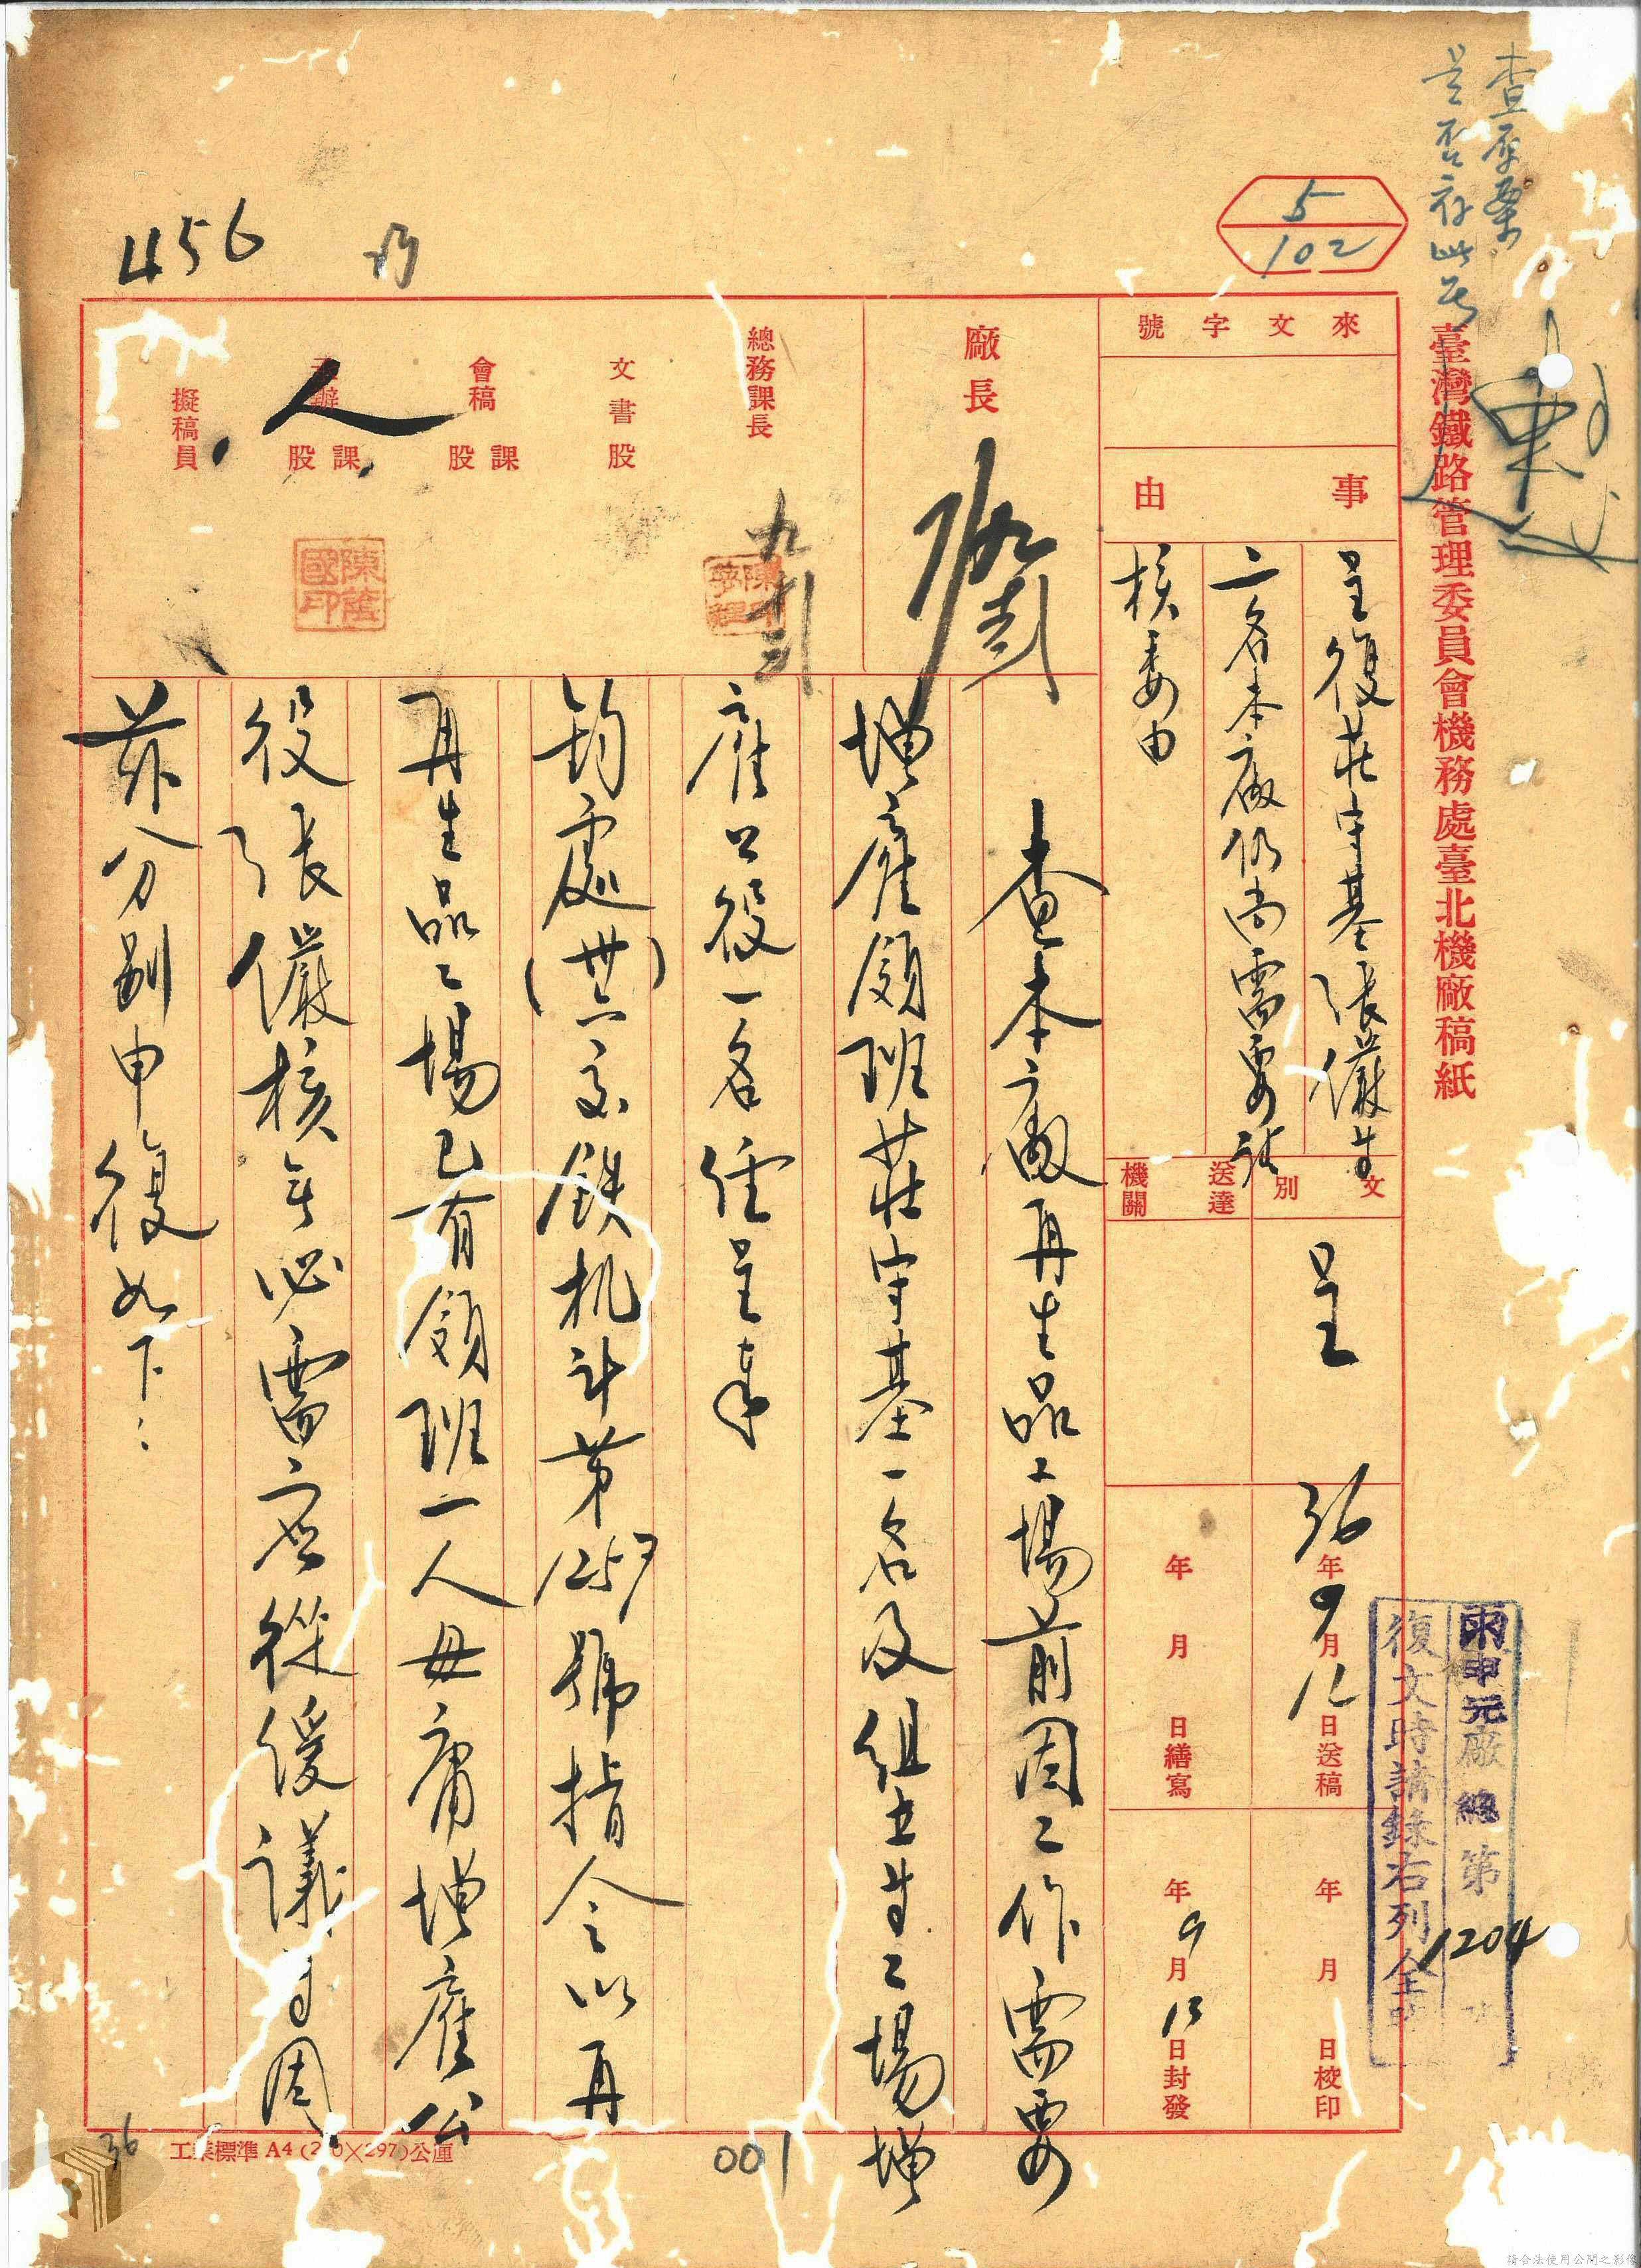 查原案
是否存此号
5
102
456
臺灣鐵路管理委員會機務處臺北機廠稿紙
來文字號
事由
呈復莊守基張儼等
二名本廠仍尚需要請
核委由
文別
呈
送達機關
36年9月12日送稿
年月日繕寫
年月日校印
年9月13日封發
廠長
總務課長
九十二
文書股
會稿
課
股
主辦
課
股
人
擬稿員
陳
國印
雨申元廠總第1204
復文時請錄右列全
查本廠再生品工場前因工作需要
增雇領班莊守基一名及組立工場增
雇公役一名經呈奉
鈞處(卅六)交鐵机計第1257號指令以再
再生品工場已有領班一人毋庸增雇公
役張儼核無必需應從緩議等因
茲分別申復如下：
工業標準A4(210×297)公厘
001
36
請合法使用公開之影像